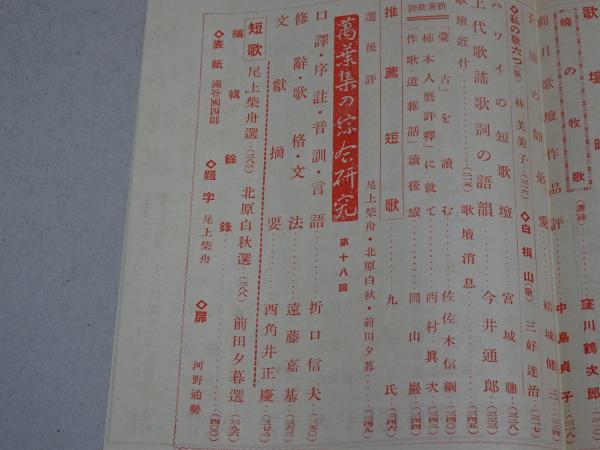 歌壇時
暁の牧歌 窪川鶴次郎
前月歌壇作品評 中島貞子
の師弟愛 結城健三
◇私の歌六つ(歌) 林芙美子 ◇白祖山(歌) 三好達治
ハワイの短歌壇 宮城聰
上代歌謡歌詞の語韻 今井通郎
歌壇近什 歌壇消息
新著批評
「蒙古」を讀む 佐佐木信綱
「柿本人麿評釋」に就て 西村眞次
「作歌道雜話」讀後感 岡山巖
推薦短歌 九氏
選後評 尾上柴舟・北原白秋・前田夕暮
萬葉集の綜合研究 第十八回
口譯・序註・音訓・言語 折口信夫
修辭・歌格・文法 遠藤嘉基
文獻摘要 西角井正慶
短歌 尾上柴舟選 北原白秋選 前田夕暮選
編輯餘錄 (四〇〇)
◇表紙 滿谷國四郎 ◇題字 尾上柴舟 ◇扉 河野通勢